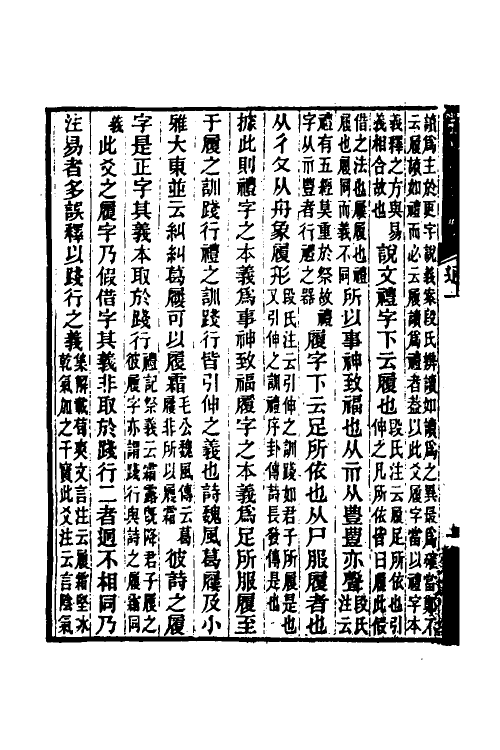 讀爲主於更字說義案段氏辨讀如讀爲之異最爲確當鄭不
云履讀如禮而必云履讀爲禮者葢以此爻履字當以禮字本
義釋之方與易
義相合故也
說文禮字下云履也
段氏注云履足所依也引
伸之凡所依皆曰履此假
借之法也屨履也禮
履也履同而義不同
所以事神致福也从示从豊豊亦聲
段氏
注云
禮有五經莫重於祭故禮
字从示豊者行禮之器
履字下云足所依也从尸服履者也
从彳夂从舟象履形
段氏注云引伸之訓踐如君子所履是也
又引伸之訓禮序卦傳詩長發傳是也
據此則禮字之本義爲事神致福履字之本義爲足所服履至
于履之訓踐行禮之訓踐行皆引伸之義也詩魏風葛屨及小
雅大東並云糾糾葛屨可以履霜
毛公魏風傳云葛
屨非所以履霜
彼詩之履
字是正字其義本取於踐行
禮記祭義云霜露旣降君子履之
彼履字亦謂踐行與詩之履霜同
義
此爻之履字乃假借字其義非取於踐行二者迥不相同乃
注易者多誤釋以踐行之義
集解載荀爽文言注云履霜堅冰
乾氣加之干寶此爻注云言陰氣